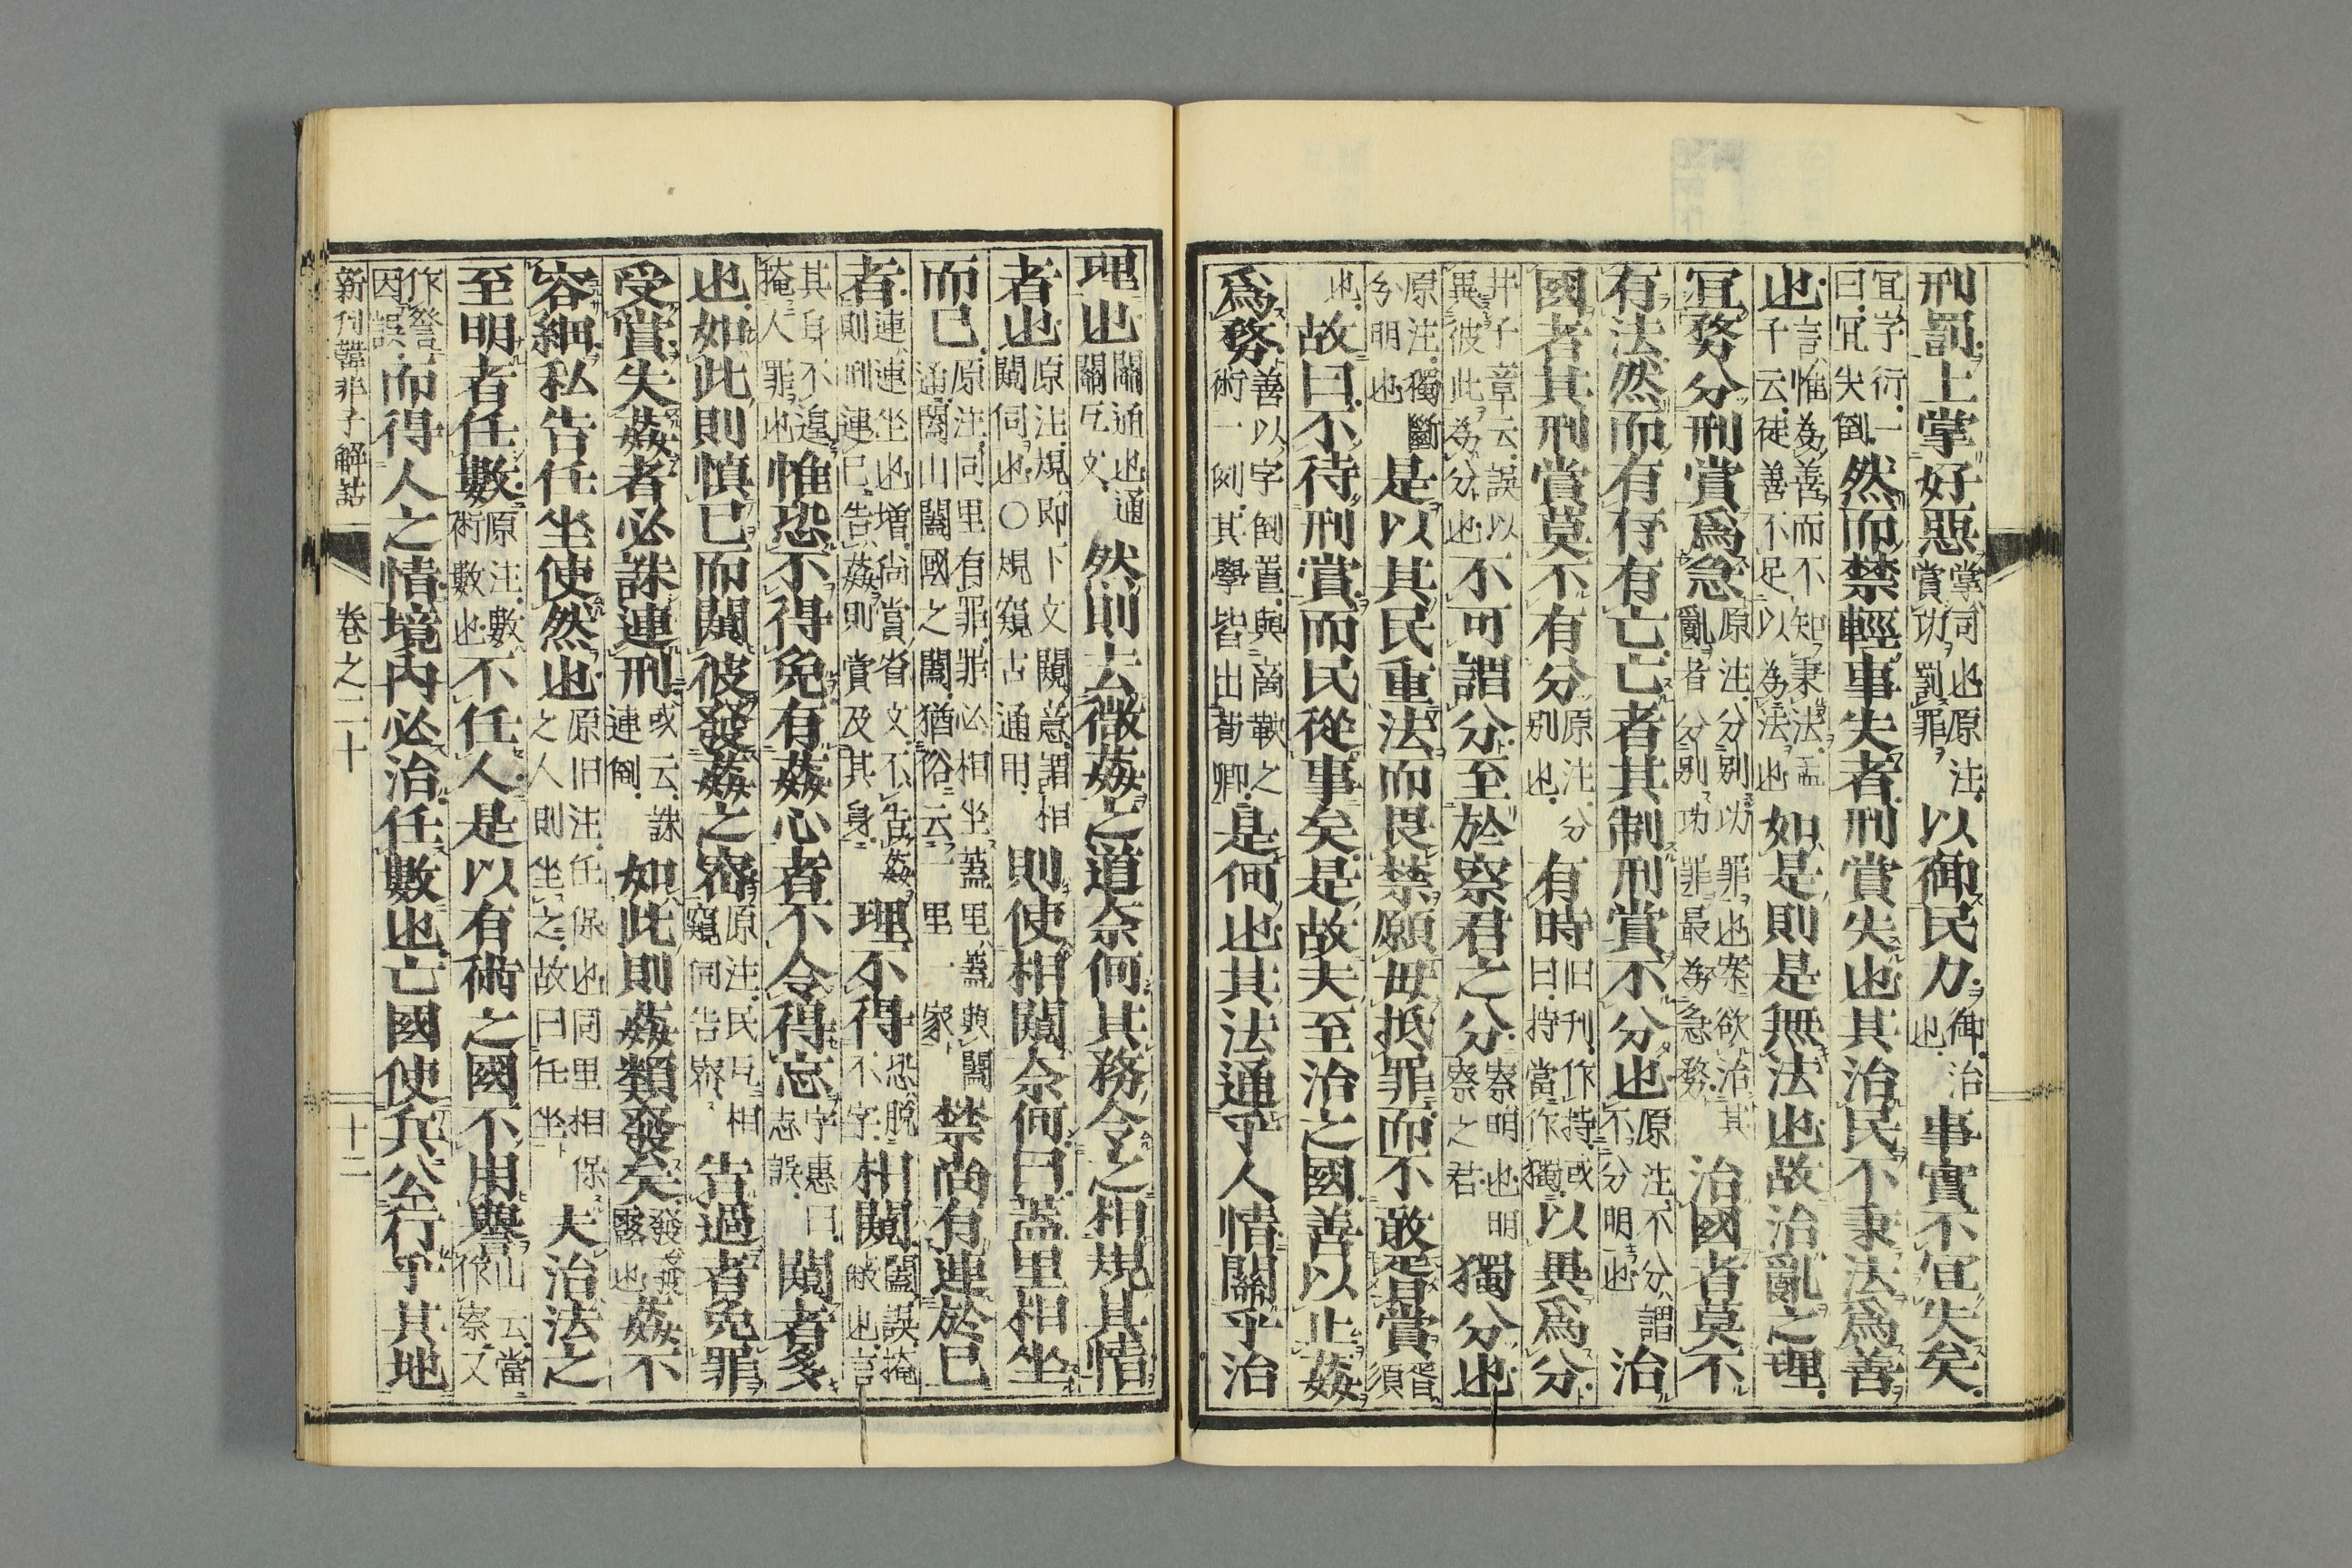 刑罰上掌好惡掌司也原注賞功罰罪以御民力御治也事實不宜失矣
宜字衍一曰宜失倒然而禁輕事失者刑賞失也其治民不秉法爲善
也言惟為善而不知秉法孟子云徒善不足以為法也如是則是無法也故治亂之理
宜務分刑賞爲急原注分別功罪也案欲治其亂者分別功罪最為急務治國者莫不
有法然而有存有亡亡者其制刑賞不分也原注不分謂不分明也治
國者其刑賞莫不有分原注分別也有時旧刊作持或曰持當作獨以異爲分
井子章云誤以異彼此為分也不可謂分至於察君之分察明也明察之君獨分也
原注獨斷分明也是以其民重法而畏禁願毋抵罪而不敢胥賞胥須
也故曰不待刑賞而民從事矣是故夫至治之國善以止姦
爲務善以字倒置與商鞅之術一例其學皆出荀卿是何也其法通乎人情關乎治
理也關通也通關互文然則去微姦之道奈何其務令之相規其情
者也原注規即下文闚意謂相闚伺也○規窺古通用則使相闚奈何曰蓋里相坐
而已原注同里有罪罪必相坐蓋里蓋與闔通闔山闔國之闔猶俗云一里一家禁尚有連於己
者連連坐也増尚賞省文不告姦則刑連已告姦則賞及其身理不得恐脫不字相闚闔誤掩候也言
其身不遑掩人罪也惟恐不得免有姦心者不令得忘字惠曰志誤闚者多
也如此則慎已而闚彼發姦之密原注民互相窺伺告察告過者免罪
受賞失姦者必誅連刑或云誅連倒如此則姦類發矣發發露也姦不
容細私告任坐使然也原旧注任保也同里相保之人則坐之故曰任坐夫治法之
至明者任數原注數術數也不任人是以有術之國不用譽山云當作察又
作詧因誤而得人之情境內必治任數也亡國使兵公行乎其地
新刊韓非子解詁　卷之二十　十二